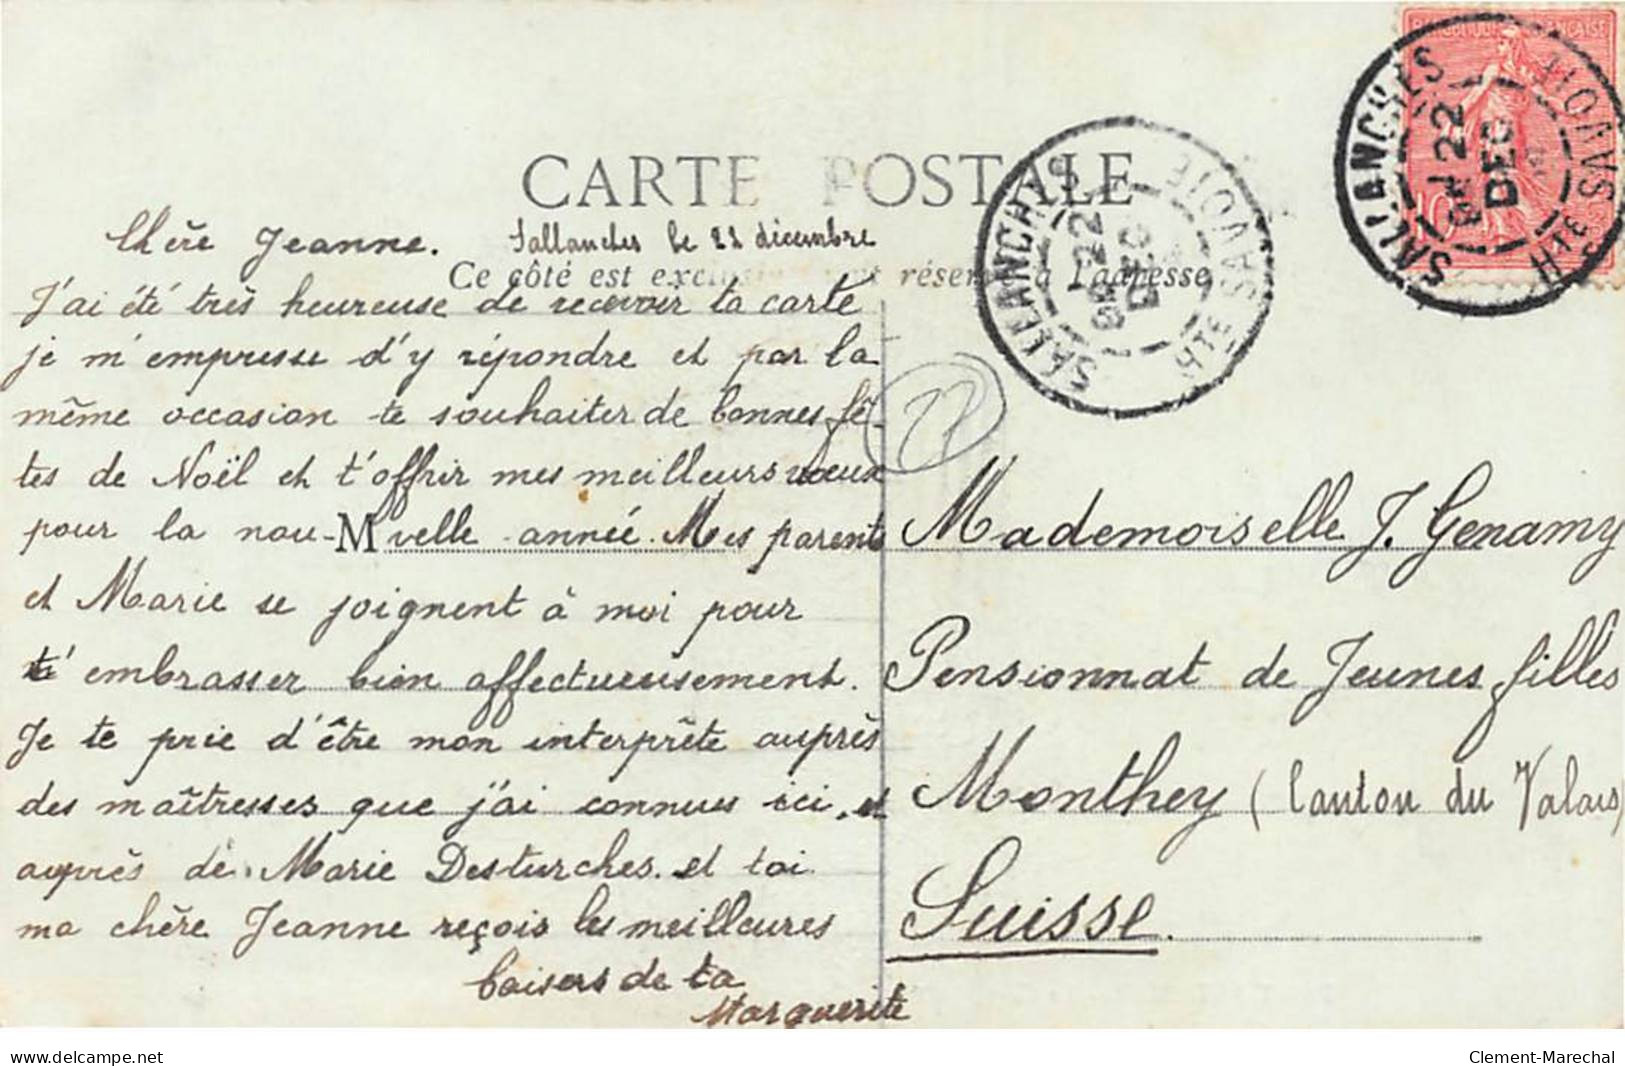 CARTE POSTALE
Sallanches le 22 décembre
Ce côté est exclusivement réservé à l'adresse
Chère Jeanne.
J'ai été très heureuse de recevoir ta carte
je m'empresse d'y répondre et par la
même occasion te souhaiter de bonnes fê-
tes de Noël et t'offrir mes meilleurs vœux
pour la nou-velle année. Mes parents
et Marie se joignent à moi pour
t'embrasser bien affectueusement.
Je te prie d'être mon interprète auprès
des maîtresses que j'ai connues ici, et
auprès de Marie Desturches. et toi
ma chère Jeanne reçois les meilleures
baisers de ta
Marguerite
M
Mademoiselle J. Genamy
Pensionnat de Jeunes filles
Monthey (Canton du Valais)
Suisse.
SALLANCHES
22
DEC
HTE SAVOIE
SALLANCHES
22
DEC
HTE SAVOIE
10
delcampe.net
Clement-Marechal